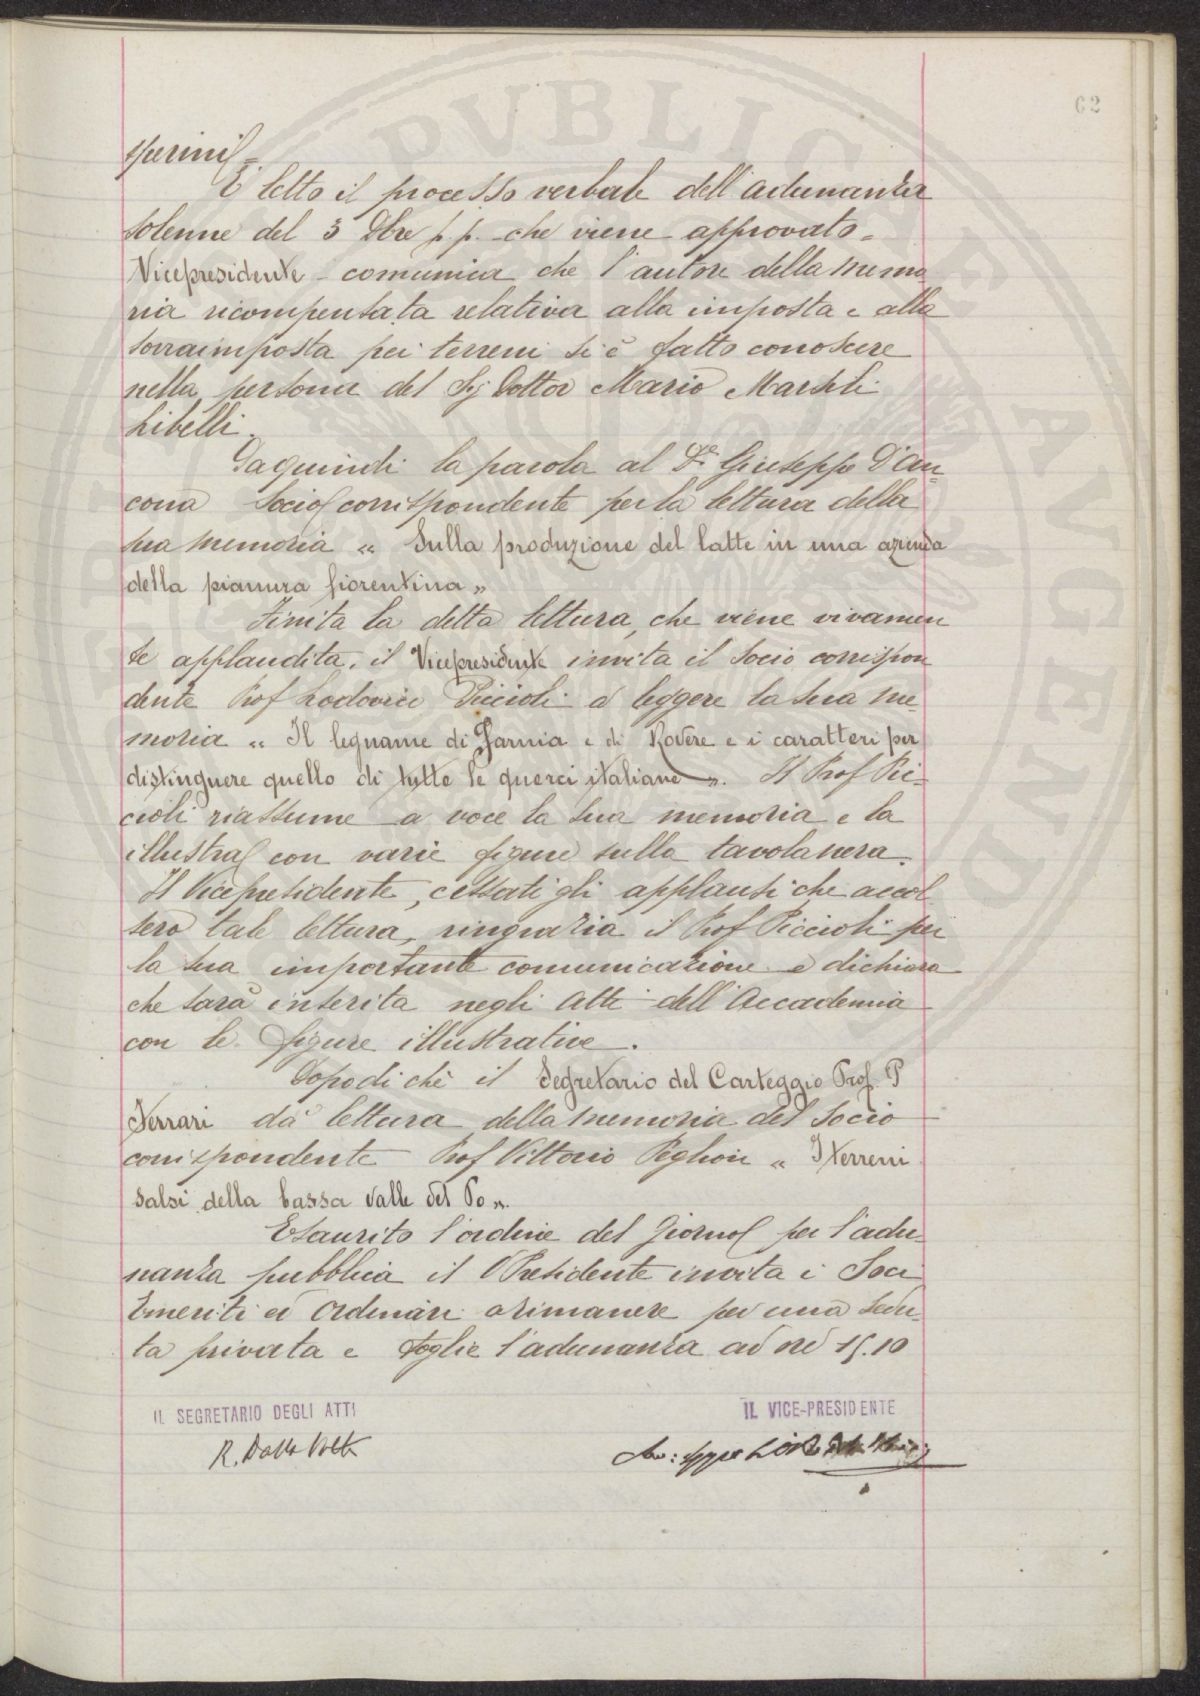 62
È letto il processo verbale dell'adunanza
solenne del 3 Dbre p.p. che viene approvato.
Vicepresidente comunica che l'autore della memo
ria ricompensata relativa alla imposta e alla
sovraimposta pei terreni si è fatto conoscere
nella persona del Sig Dottor Mario Marsili
Libelli.
Da quindi la parola al Dr Giuseppe D'An-
cona Socio corrispondente per la lettura della
sua memoria "Sulla produzione del latte in una azienda
della pianura fiorentina"
Finita la detta lettura, che viene vivamen
te applaudita, il Vicepresidente invita il Socio corrispon
dente Prof Lodovico Piccioli a leggere la sua me-
moria "Il legname di Farnia e di Rovere e i caratteri per
distinguere quello di tutte le querci italiane". Il Prof Pic-
cioli riassume a voce la sua memoria e la
illustra con varie figure sulla tavola nera.
Il Vicepresidente, cessati gli applausi che accol
sero tale lettura, ringrazia il Prof Piccioli per
la sua importante comunicazione e dichiara
che sarà inserita negli Atti dell'Accademia
con le figure illustrative.
Dopo di chè il Segretario del Carteggio Prof. P
Ferrari dà lettura della memoria del Socio
corrispondente Prof Vittorio Peglion "I terreni
salsi della bassa valle del Po".
Esaurito l'ordine del Giorno per l'adu-
nanza pubblica il V Presidente invita i Soci
Emeriti ed Ordinari a rimanere per una sedu-
ta privata e toglie l'adunanza ad ore 15.10
IL SEGRETARIO DEGLI ATTI
IL VICE-PRESIDENTE
R. Dalla Volta